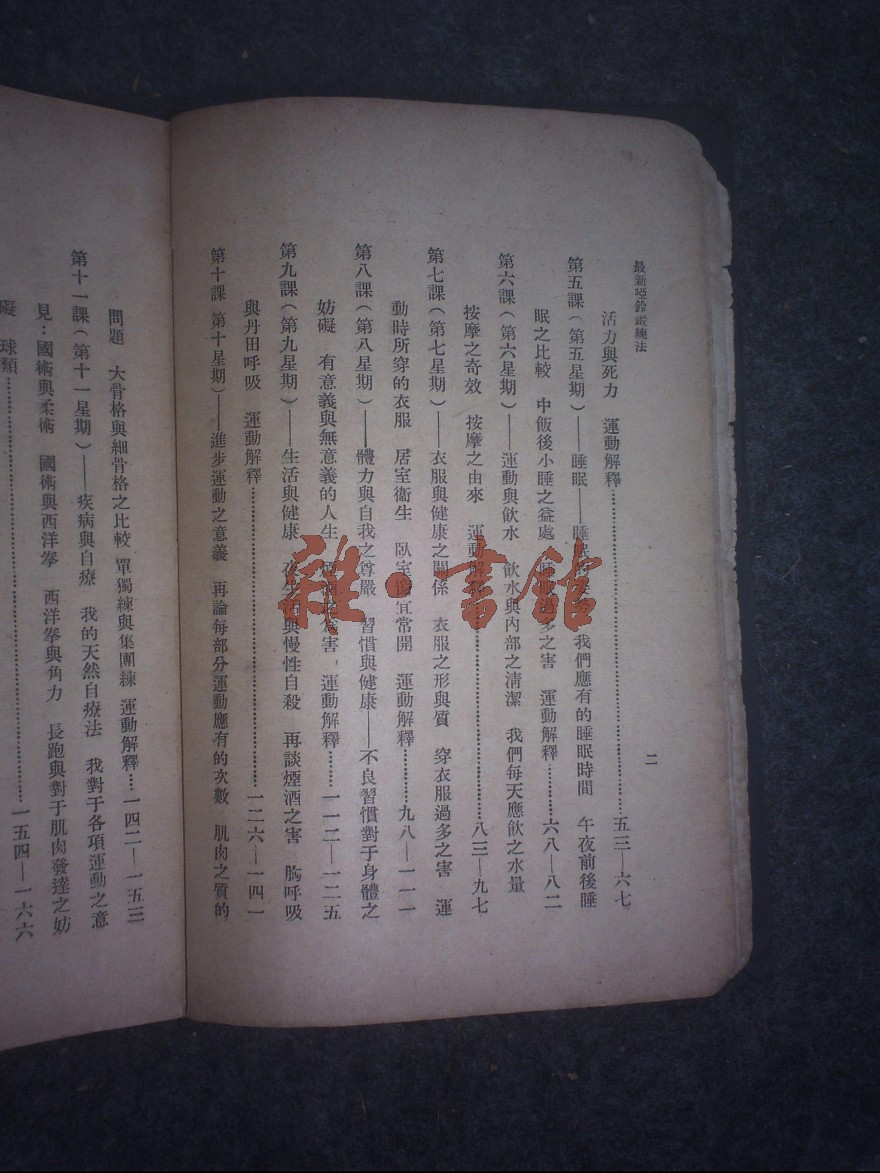 最新啞鈴鍛練法
二
活力與死力 運動解釋……五三—六七
第五課(第五星期)——睡眠——睡眠的 我們應有的睡眠時間 午夜前後睡
眠之比較 中飯後小睡之益處 睡眠過多之害 運動解釋……六八—八二
第六課(第六星期)——運動與飲水 飲水與內部之清潔 我們每天應飲之水量
按摩之奇效 按摩之由來 運動解釋……八三—九七
第七課(第七星期)——衣服與健康之關係 衣服之形與質 穿衣服過多之害 運
動時所穿的衣服 居室衞生 臥室窗宜常開 運動解釋……九八—一一一
第八課(第八星期)——體力與自我之尊嚴 習慣與健康——不良習慣對于身體之
妨礙 有意義與無意義的人生 害 運動解釋……一一二—一二五
第九課(第九星期)——生活與健康 夜生活與慢性自殺 再談煙酒之害 胸呼吸
與丹田呼吸 運動解釋……一二六—一四一
第十課(第十星期)——進步運動之意義 再論每部分運動應有的次數 肌肉之質的
問題 大骨格與細骨格之比較 單獨練與集團練 運動解釋…一四二—一五三
第十一課(第十一星期)——疾病與自療 我的天然自療法 我對于各項運動之意
見:國術與柔術 國術與西洋拳 西洋拳與角力 長跑與對于肌肉發達之妨
礙 球類……一五四—一六六
雜·書館